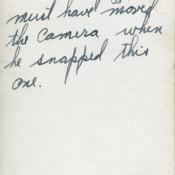 must have moved
the camera when
he snapped this
one.